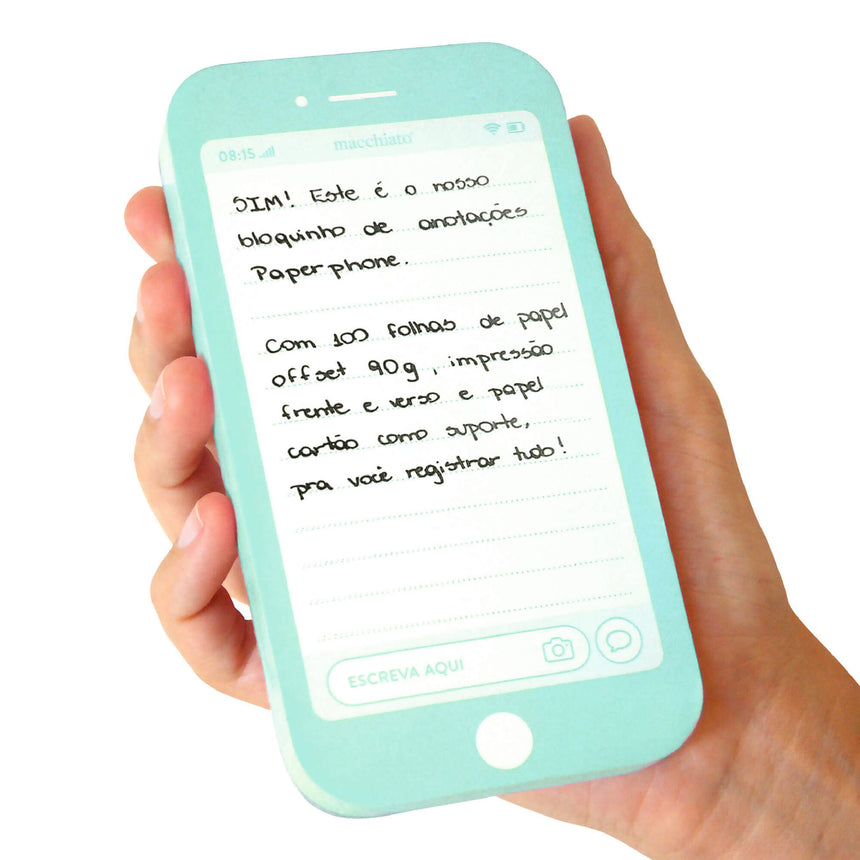 08:15
macchiato®
SIM! Este é o nosso
bloquinho de anotações
Paperphone.
Com 100 folhas de papel
offset 90g, impressão
frente e verso e papel
cartão como suporte,
pra você registrar tudo!
ESCREVA AQUI